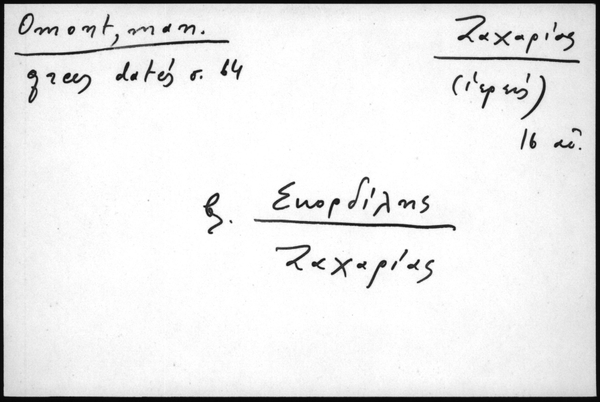 Omont, man.
grecs datés σ. 64
Ζαχαρίας
(ἱερεύς)
16 αἰ.
βλ. Σκορδίλης
Ζαχαρίας